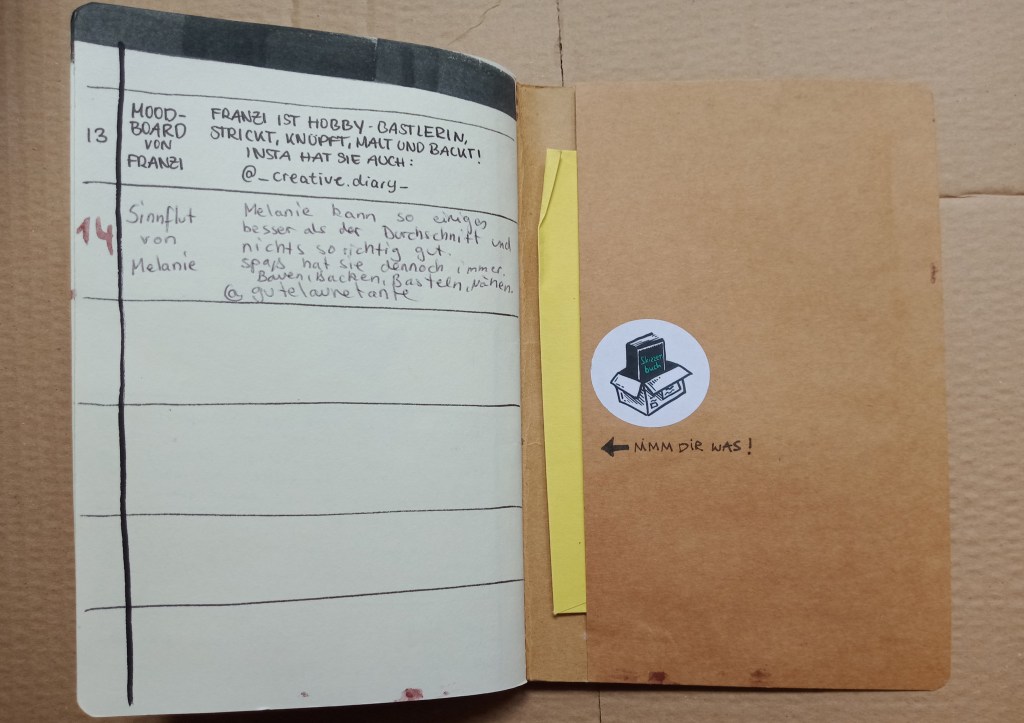 13
MOOD-
BOARD
VON
FRANZI
FRANZI IST HOBBY-BASTLERIN,
STRICKT, KNÜPFT, MALT UND BACKT!
INSTA HAT SIE AUCH:
@_creative.diary_
14
Sinnflut
von
Melanie
Melanie kann so einiges
besser als der Durchschnitt und
nichts so richtig gut.
spaß hat sie dennoch immer.
Bauen, Backen, Basteln, Nähen.
@gutelaunetante
Skizzen
buch
← NIMM DIR WAS!